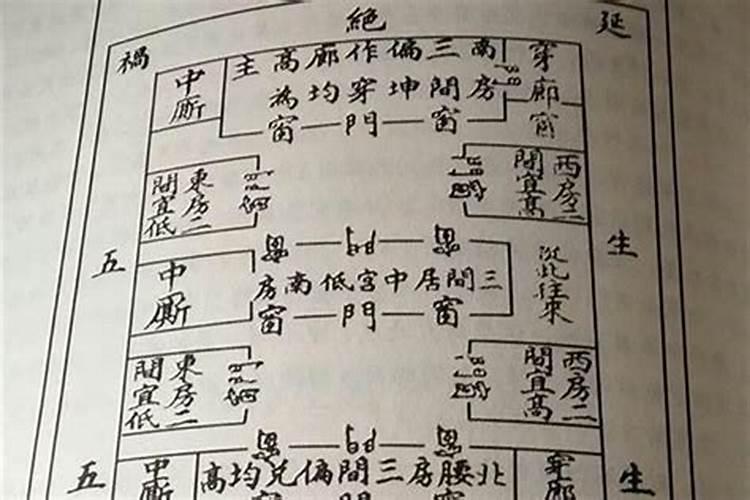 絶
延
禍
穿廊窗
南房三間偏坤作穿廊均高為主
門
中厮
窗門窗
西房二間宜高
門窗
東房二間宜低
門窗
生
五
窗門窗
從此往來
三間居中宮低南房
中厮
窗門窗
西房二間宜高
門窗
東房二間宜低
門窗
窗門窗
生
五
穿廊
北腰房三間偏兌均高
中厮